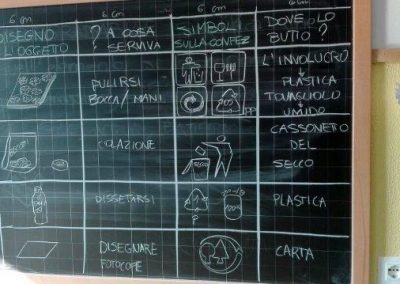 6 cm 6 cm 6 cm 6 cm
DISEGNO L'OGGETTO
? A COSA SERVIVA
SIMBOLI SULLA CONFEZ.
DOVE LO BUTTO ?
PULIRSI BOCCA/MANI
PP
L'INVOLUCRO
PLASTICA
TOVAGLIOLO
UMIDO
COLAZIONE
CASSONETO
DEL
SECCO
DISSETARSI
PLASTICA
DISEGNARE
FOTOCOPIE
CARTA